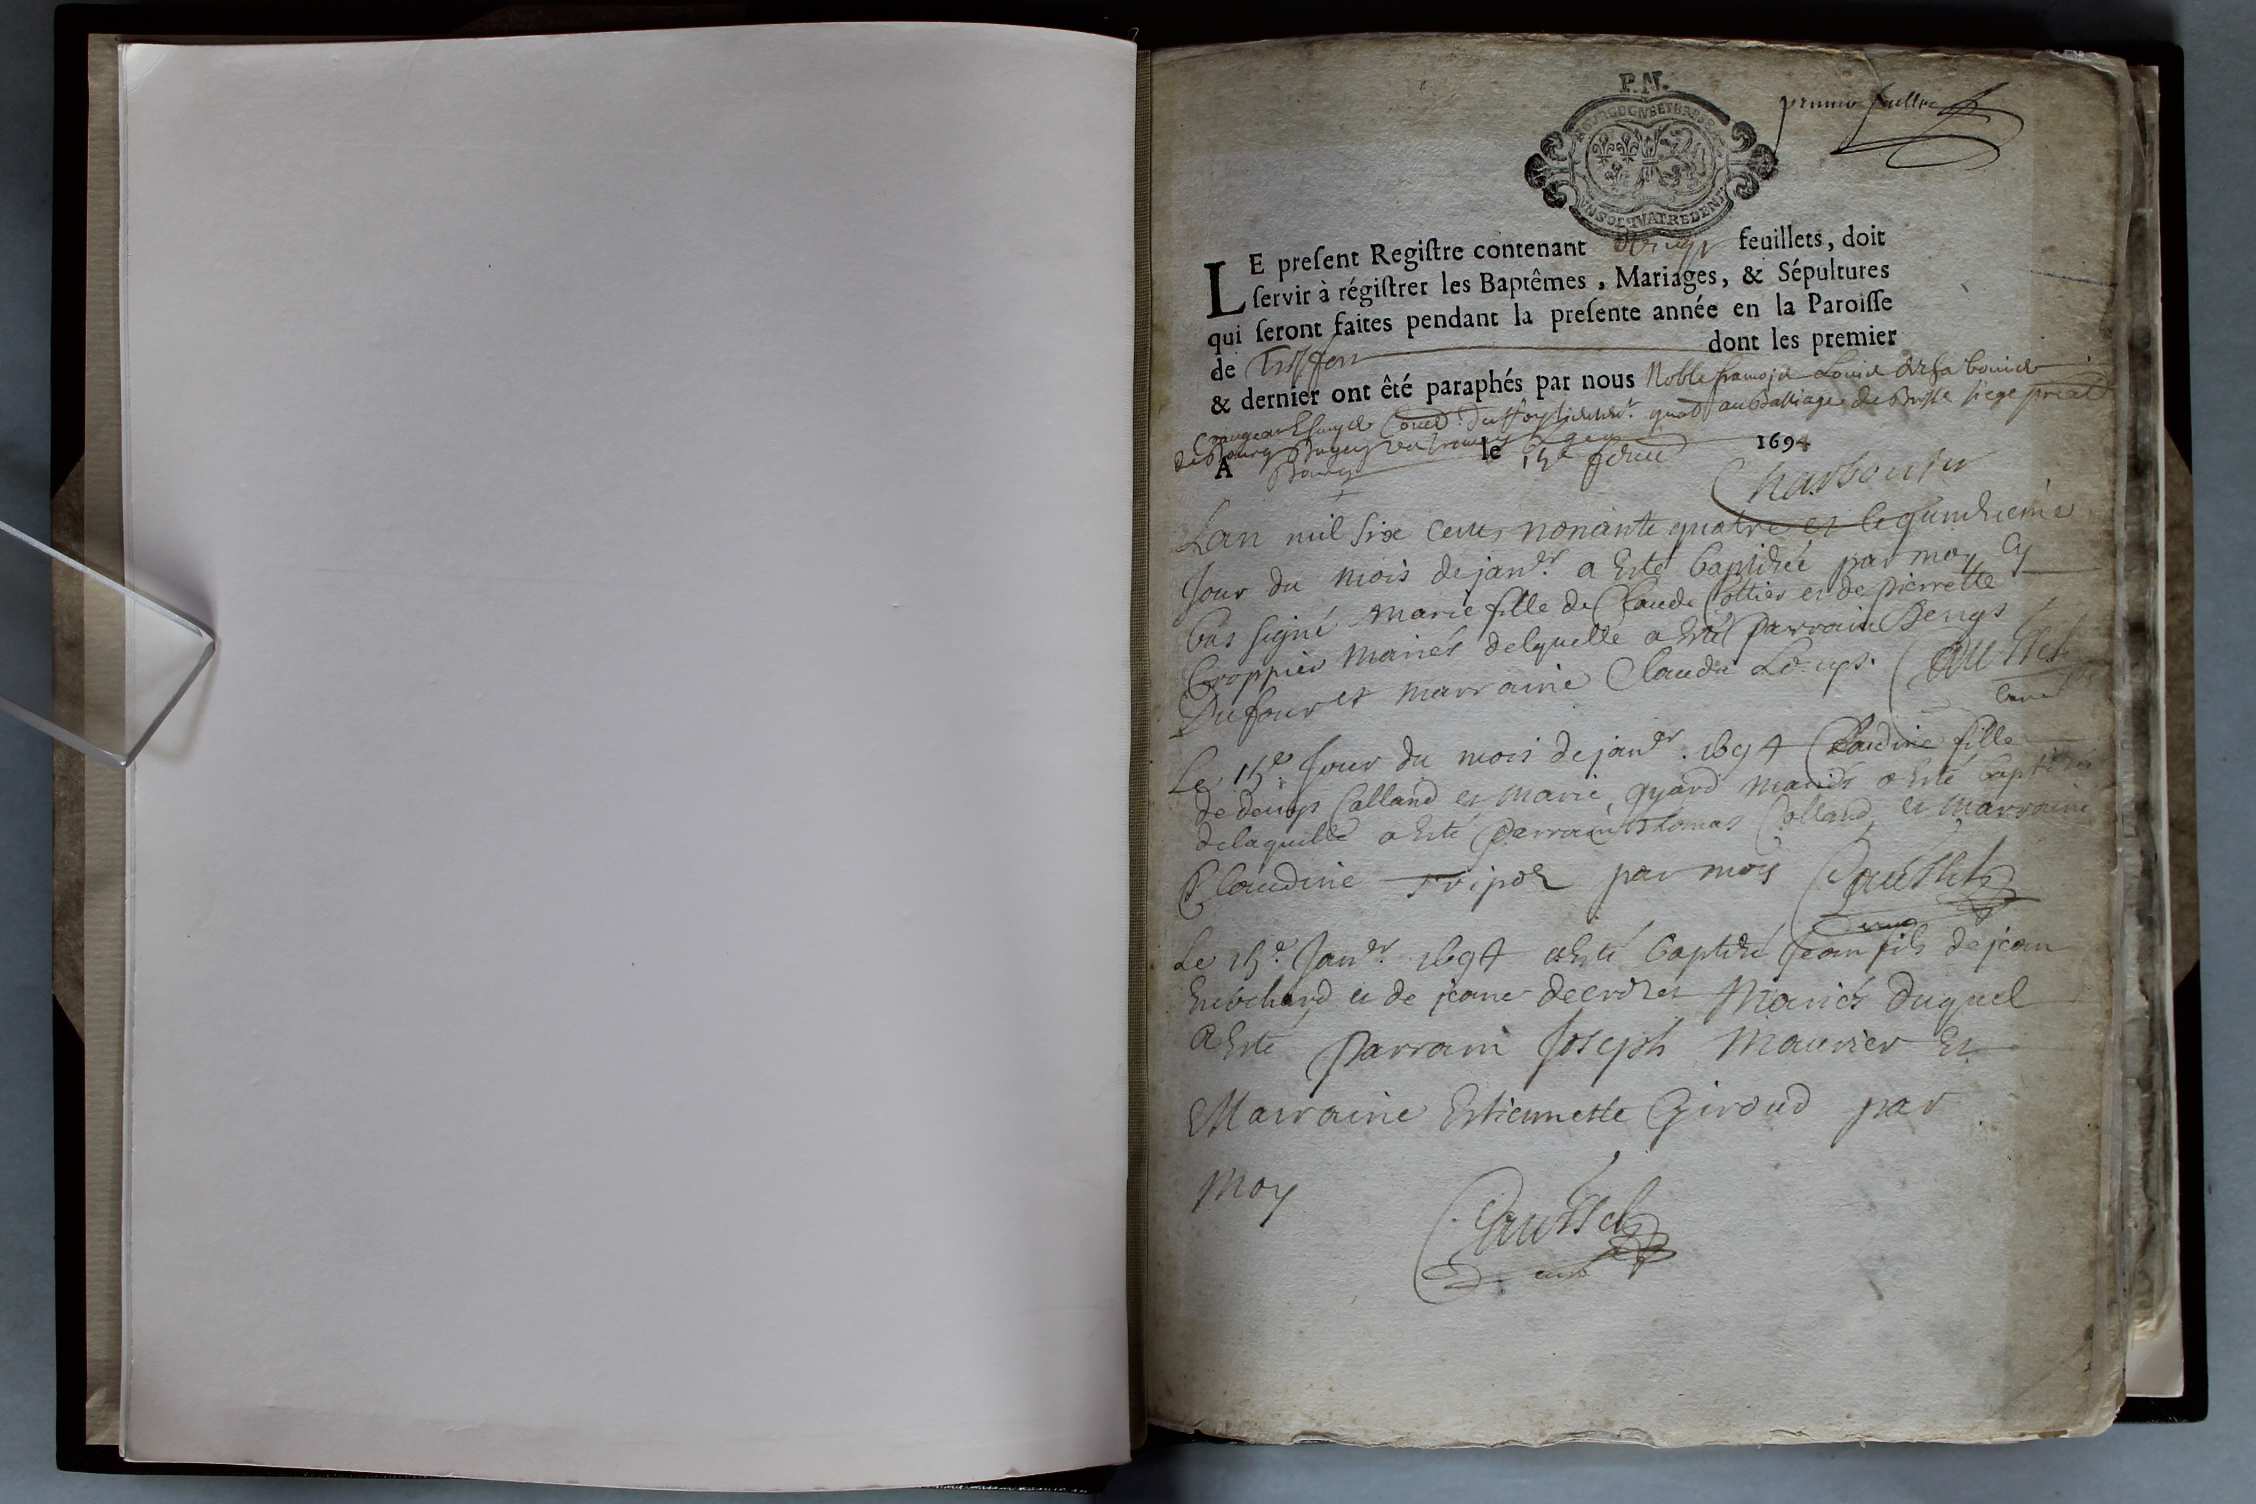 P.N.
premier feullet
BOVRGOGNE ET BRESSE
VN SOL QVATRE DEN
LE preſent Regiſtre contenant feuillets, doit
ſervir à régiſtrer les Baptêmes, Mariages, & Sépultures
qui ſeront faites pendant la preſente année en la Paroiſſe
de Treffort dont les premier
& dernier ont êté paraphés par nous Noble françois Louis
de Bourg Bugey
A Bourg le 15e 1694
Charbonnier
Lan mil six cents nonante quatre et le quinzieme
Jour du mois de janer. a Esté baptizée par moy cy
bas signé Marie fille de Claude Cottier et de pierrette
Croppier Mariés delquelle a Esté parrain Denys
Dufour et marraine Clauda Loups. Caussel
curé
Le 15e. Jour du mois de janer. 1694 Claudine fille
de denys Calland et Marie gyard Mariés a Esté baptizée
delaquelle a Esté parrain thomas Calland et Marraine
Claudine tripoz par moy Caussel
curé
Le 15e. Janer. 1694 a Esté baptizé Jean fils de jean
Enrichard et de jeane decroset Mariés duquel
a Esté parrain Joseph Maurier Et
Marraine Estiennette Giroud par
moy
Caussel
curé